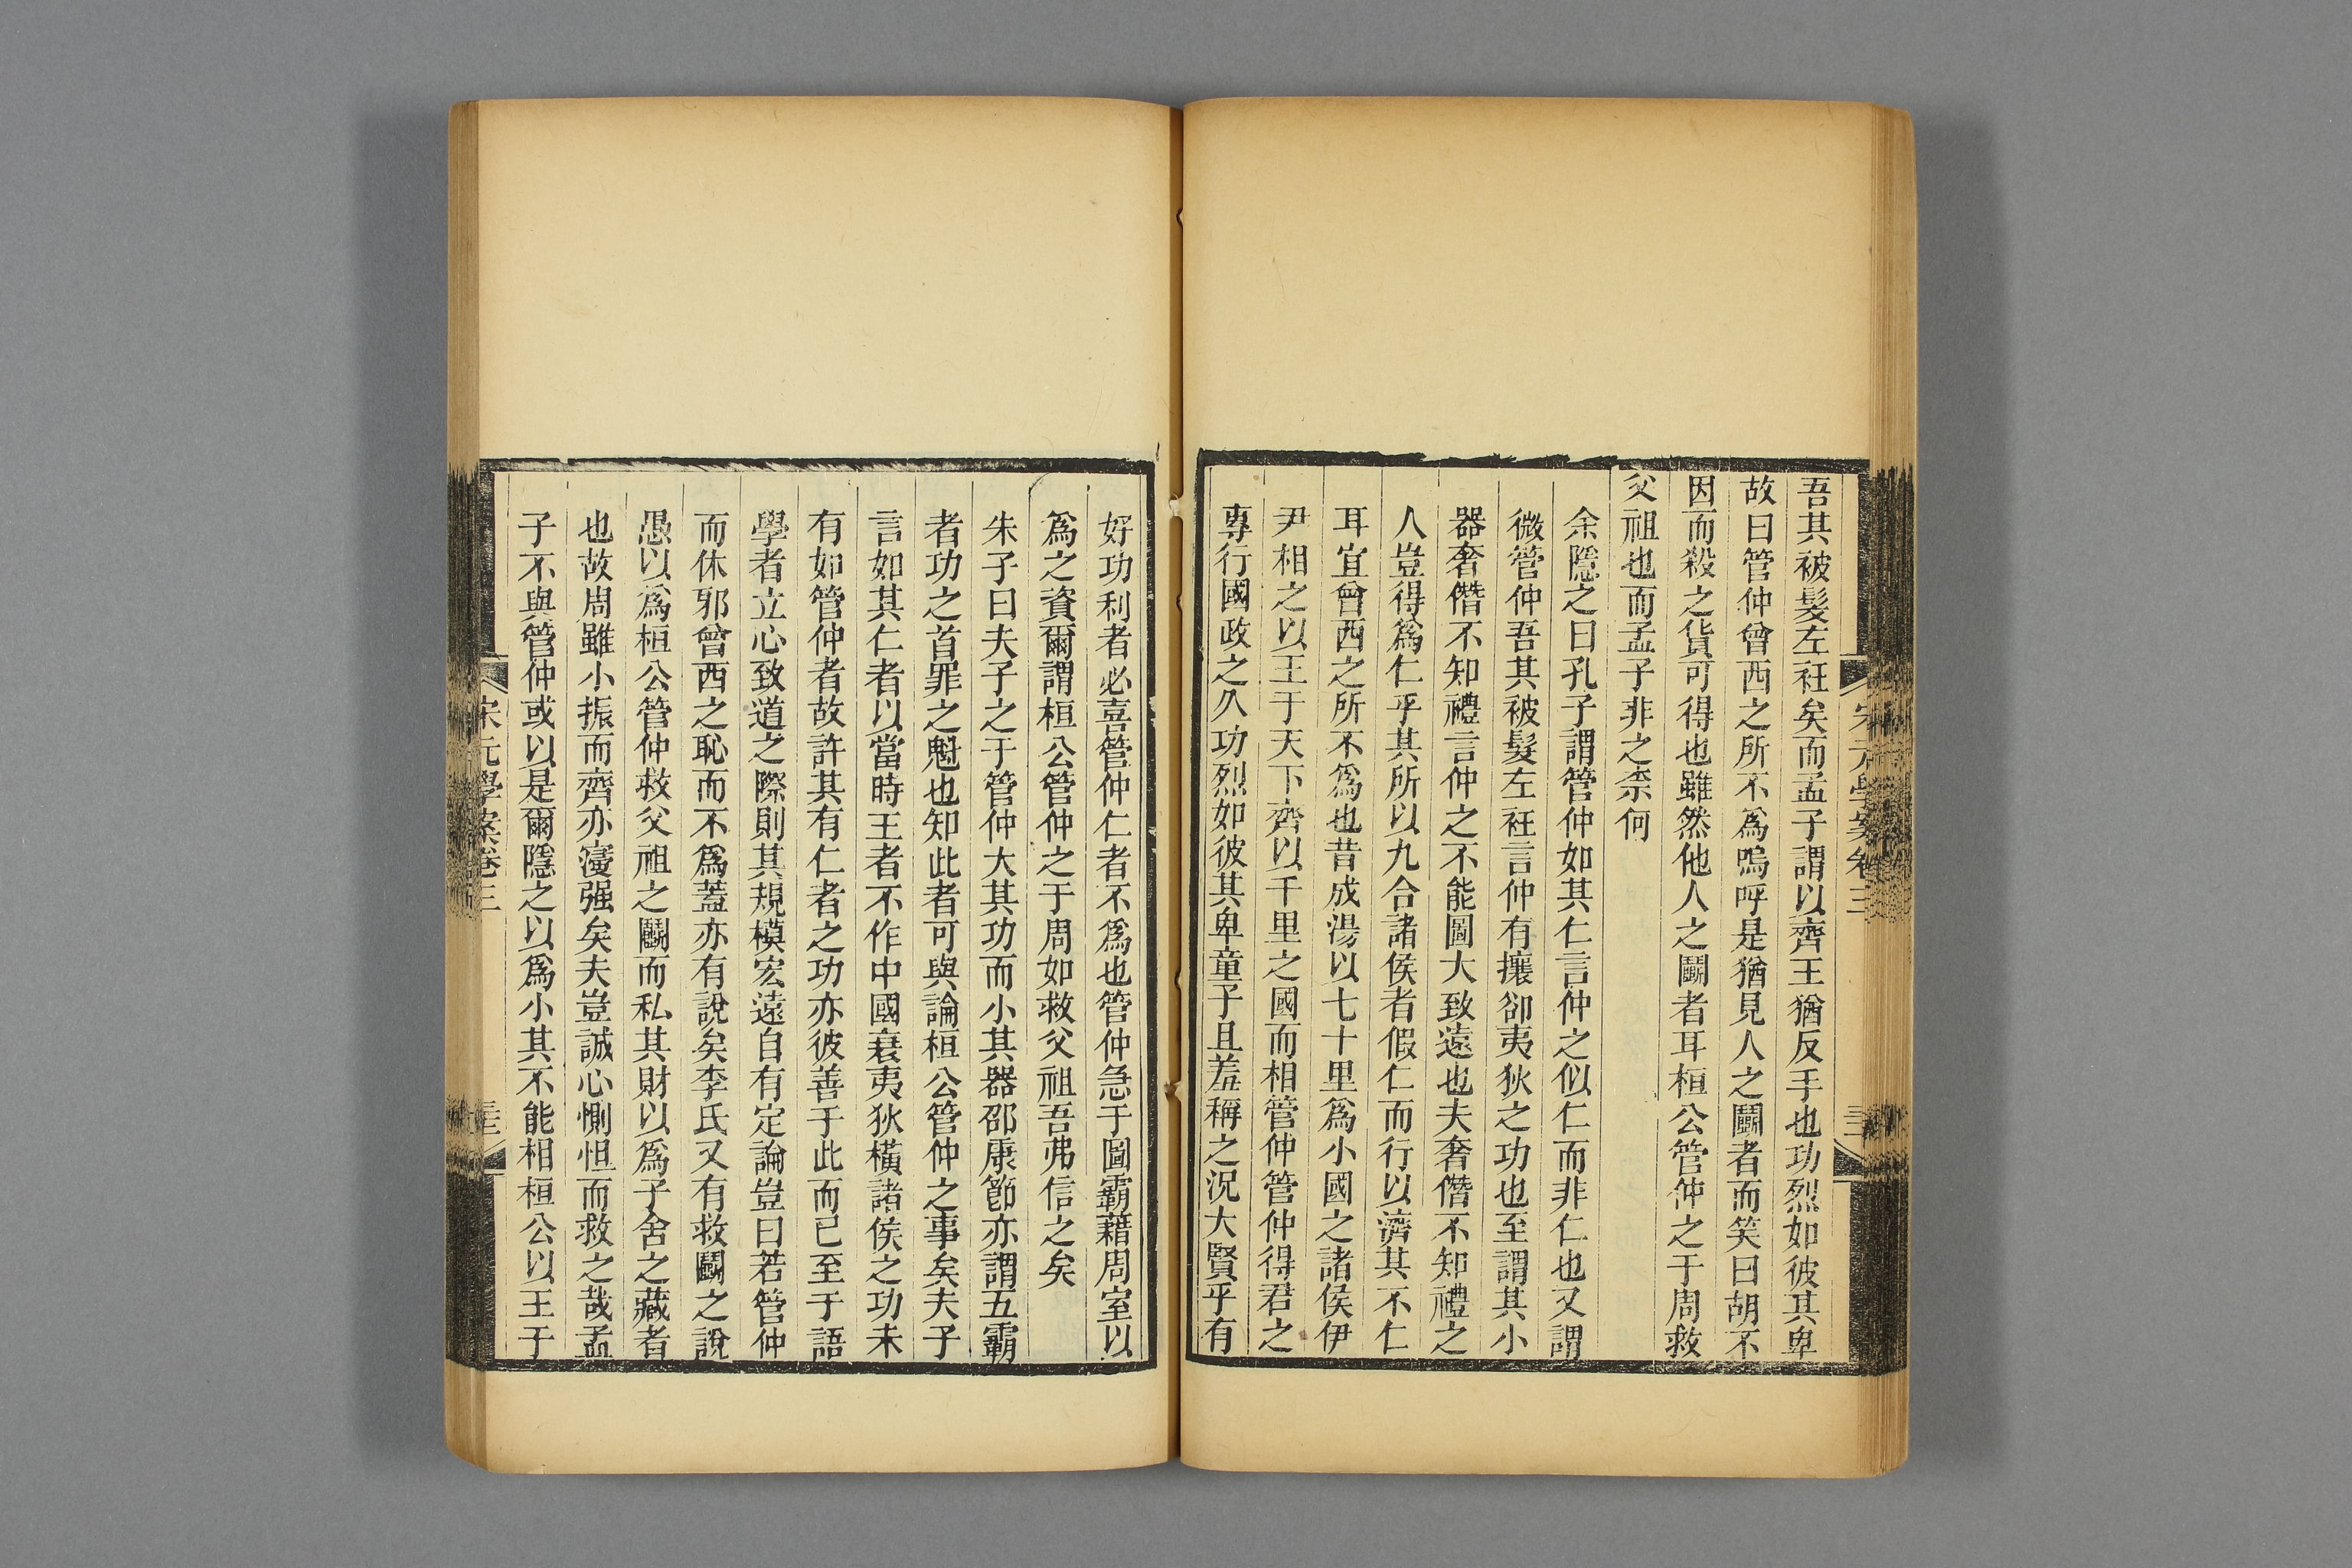 吾其被髮左衽矣而孟子謂以齊王猶反手也功烈如彼其卑
故曰管仲曾西之所不爲嗚呼是猶見人之鬭者而笑曰胡不
因而殺之貨可得也雖然他人之鬭者耳桓公管仲之于周救
父祖也而孟子非之柰何
余隱之曰孔子謂管仲如其仁言仲之似仁而非仁也又謂
微管仲吾其被髮左衽言仲有攘卻夷狄之功也至謂其小
器奢僭不知禮言仲之不能圖大致遠也夫奢僭不知禮之
人豈得爲仁乎其所以九合諸侯者假仁而行以濟其不仁
耳宜曾西之所不爲也昔成湯以七十里爲小國之諸侯伊
尹相之以王于天下齊以千里之國而相管仲管仲得君之
專行國政之久功烈如彼其卑童子且羞稱之況大賢乎有
宋元學案卷三
好功利者必喜管仲仁者不爲也管仲急于圖霸藉周室以
爲之資爾謂桓公管仲之于周如救父祖吾弗信之矣
朱子曰夫子之于管仲大其功而小其器邵康節亦謂五霸
者功之首罪之魁也知此者可與論桓公管仲之事矣夫子
言如其仁者以當時王者不作中國衰夷狄橫諸侯之功未
有如管仲者故許其有仁者之功亦彼善于此而已至于語
學者立心致道之際則其規模宏遠自有定論豈曰若管仲
而休邪曾西之恥而不爲蓋亦有說矣李氏又有救鬭之說
愚以爲桓公管仲救父祖之鬭而私其財以爲子舍之藏者
也故周雖小振而齊亦寖强矣夫豈誠心惻怛而救之哉孟
子不與管仲或以是爾隱之以爲小其不能相桓公以王于
宋元學案卷三